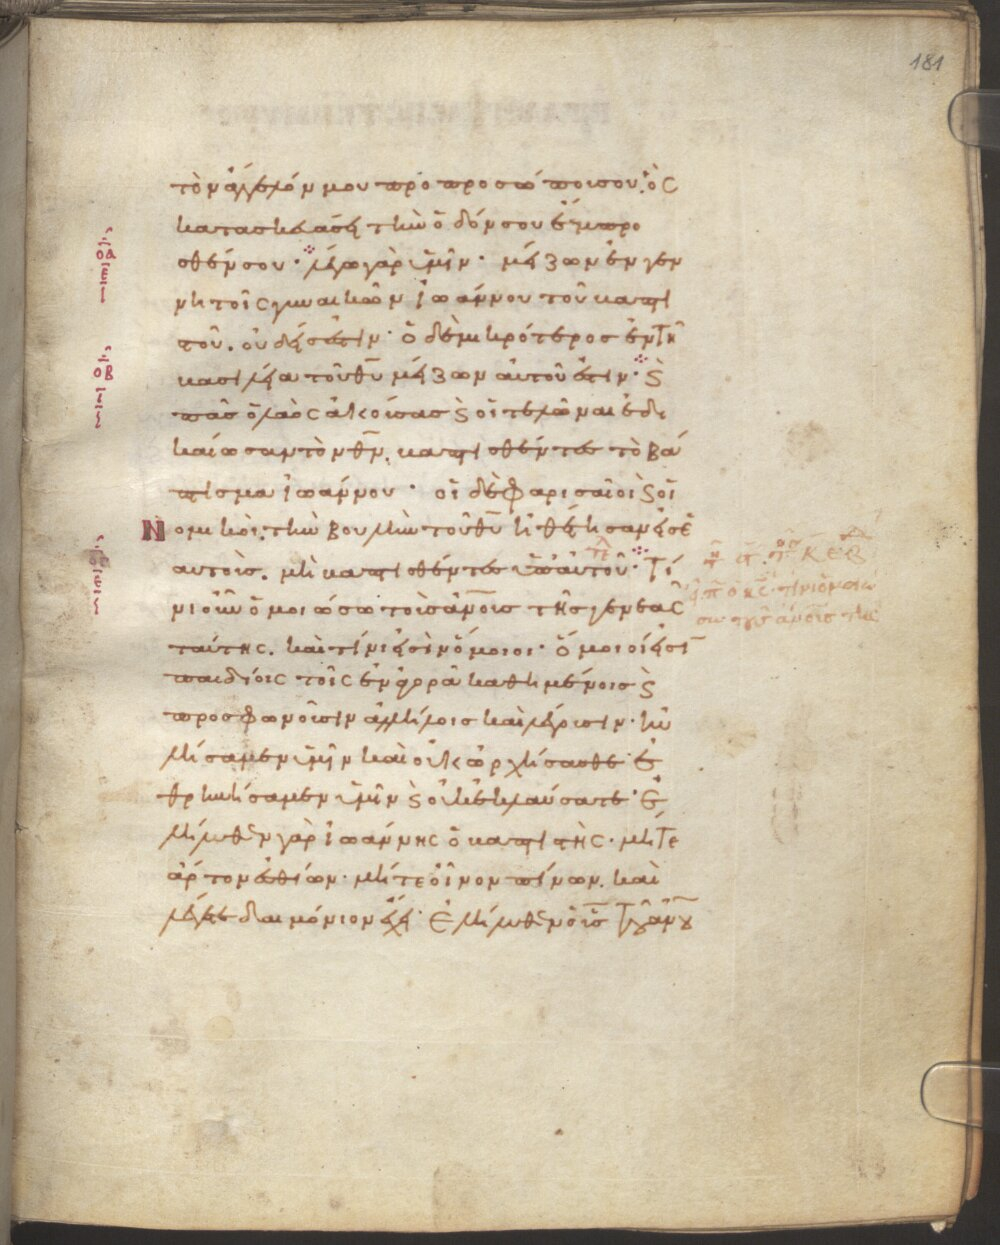 181
τὸν ἄγγελόν μου προ προσώπου σου· ὃς
κατασκευάσει τὴν ὁδόν σου ἔμπρο
σθέν σου · λέγω γὰρ ὑμῖν · μείζων ἐν γεν
νητοῖς γυναικῶν ἰωάννου τοῦ βαπτι
τοῦ. οὐδείς ἐστιν · ὁ δὲ μικρότερος ἐν τῆ
βασιλεία τοῦ θυ μείζων αὐτοῦ ἐστιν · ϗ
πᾶσ ὁ λαὸς ἀκούσασ ϗ οἱ τελῶναι ἐδι
καίωσαν τὸν θν. βαπτισθέντεσ τὸ βά
πτισμα ἰωάννου · οἱ δὲ φαρισαῖοι ϗ οἱ
Νομικοὶ. τὴν βουλὴν τοῦ θυ ἠθέτησαν εἰσ ἑ
αυτοὺσ. μὴ βαπτισθέντεσ ὑπ αὐτοῦ · Τί
νι οὖν ὁμοιώσω τοὺσ ἀνουσ τῆσ γενεᾶς
ταύτης. καὶ τίνι εἰσὶν ὅμοιοι · ὅμοιοί εἰσι
παιδίοις τοῖς ἐν ἀγορᾶ καθημένοισ ϗ
προσφωνοῦσιν ἀλλήλοισ καὶ λέγουσιν · ηὐ
λήσαμεν ὑμῖν καὶ οὐκ ὠρχήσασθε · ἐ
θρηνήσαμεν ὑμῖν ϗ οὐκ ἐκλαύσατε · ἐ
λήλυθεν γὰρ ἰωάννης ὁ βαπτιτὴς · μήτε
ἄρτον ἐσθίων · μήτε οἶνον πίνων. καὶ
λέγετε δαιμόνιον ἔχει · Ἐλήλυθεν ὁ υσ τοῦ ἀνου
οα
οβ